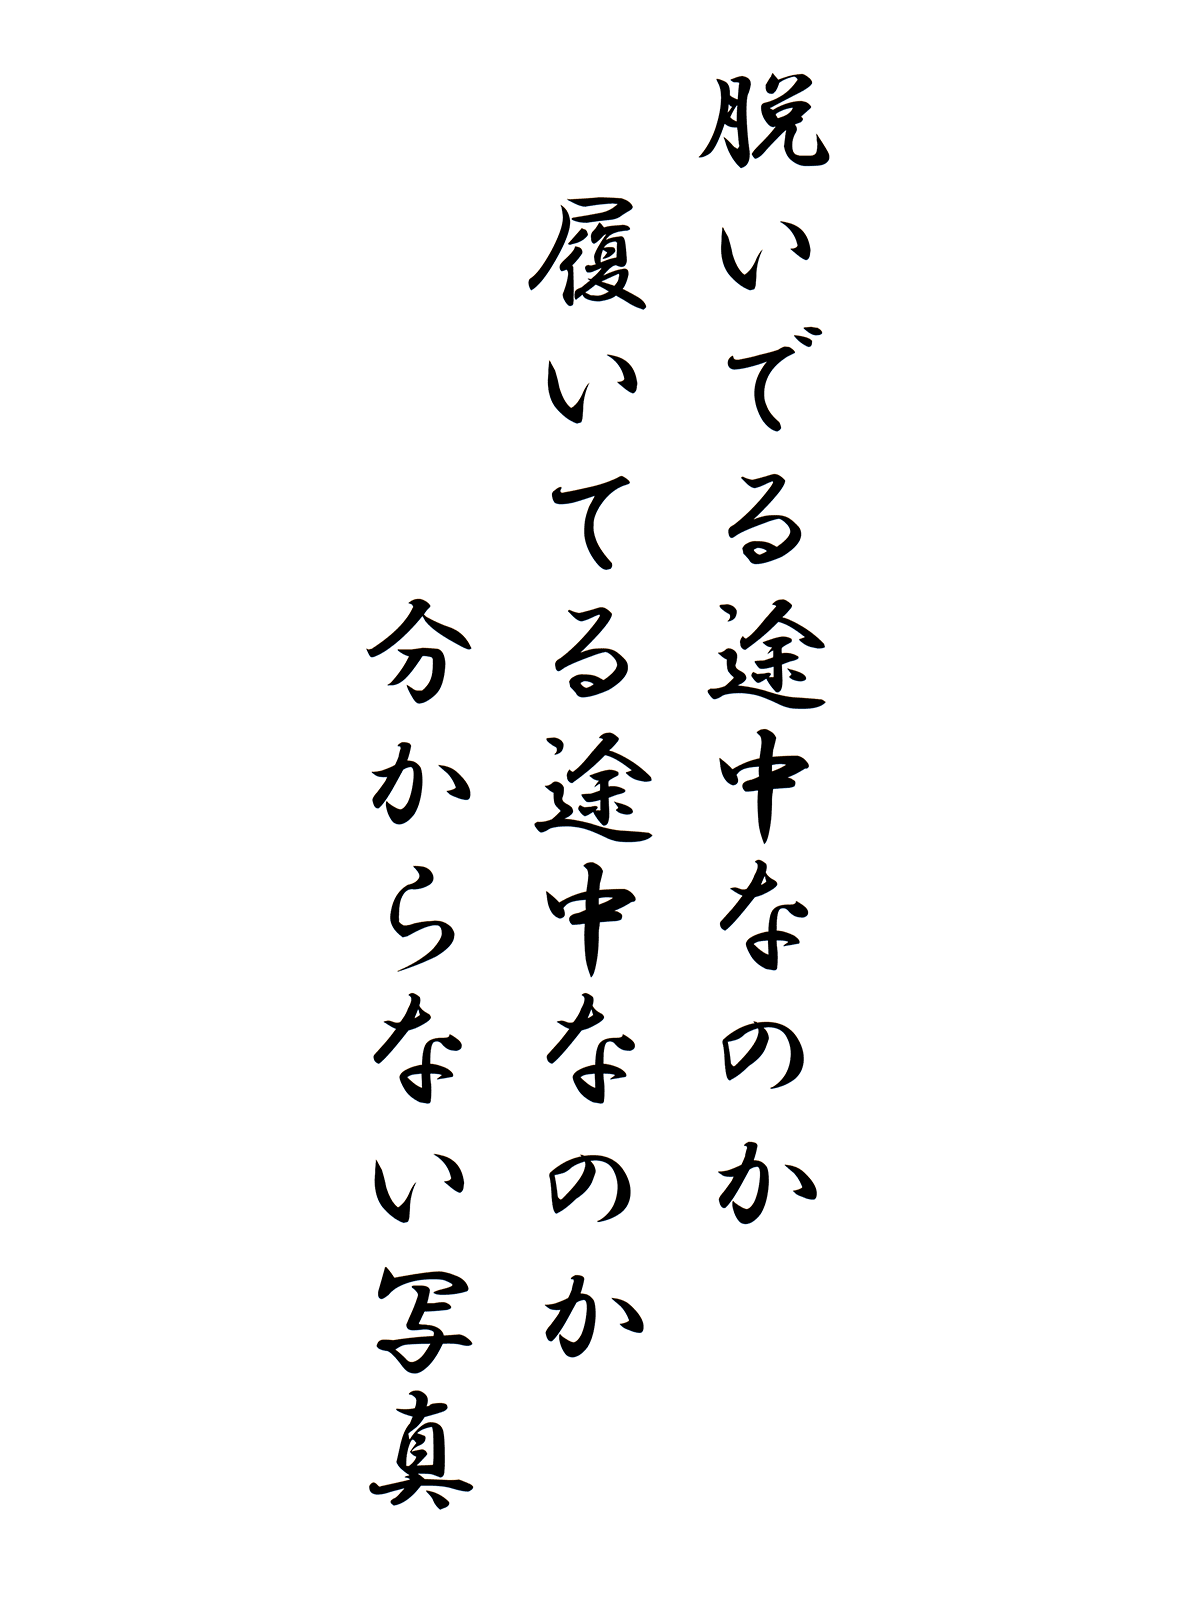 脱いでる途中なのか
履いてる途中なのか
分からない写真